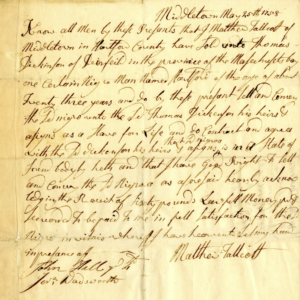 Middletown May 25th 1758
Know all men by these Presents that I Matthew Tallcott of
Middletown in Hartford County have Sold unto Thomas
Dickinson of Deerfield in the province of the Massachusetts bay
one Certain Negro Man Named of the age of about
Twenty three years and do by these present Sell and Convey
the Sd Negro unto the Sd Thomas Dickinson his heirs &
assigns as a Slave for Life and do Covenant and agree
with the Sd Dickinson his heirs
bodyly helth and that I have Good Right to Sell
and Convey the Sd Negro as aforesaid hereby acknow
ledg in the Receit of pounds Lawfull Money
to be paid to me in full Satisfaction for the
Negro in witness whereof I have hereunto Set my hand
in presence of
John
Matthew Tallcott